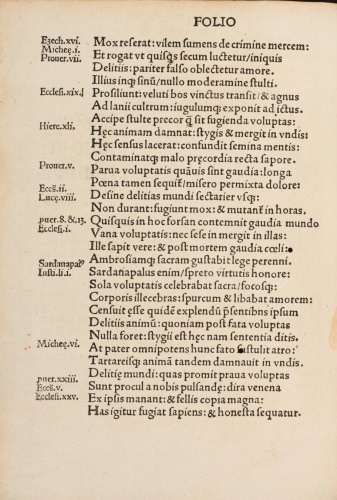 FOLIO
Ezech.xvi. Mox reserat: vilem sumens de crimine mercem:
Micheę.i. Et rogat vt quisq̃s secum luctetur/iniquis
Prouer.vii. Delitiis: pariter falso oblectetur amore.
Illius inq̃ sinũ/nullo moderamine stulti.
Ecclesi.ixx. Prosiliunt: veluti bos vinctus transit/& agnus
Ad lanii cultrum: iugulumq̃ exponit ad ictus.
Accipe stulte precor q̃ sit fugienda voluptas:
Hiere.xli. Hęc animam damnat: stygis & mergit in vndis:
Hęc sensus lacerat: confundit semina mentis:
Contaminatq̃ malo pręcordia recta sapore.
Prouer.v. Parua voluptatis quãuis sunt gaudia: longa
Pœna tamen sequit̃/misero permixta dolore:
Eccũ.ii. Desine delitias mundi sectarier vsq̃:
Lucę.viii. Non durant: fugiunt mox: & mutant̃ in horas.
puer.8.&.13. Quisquis in hoc forsan contemnit gaudia mundo
Ecclesi.i. Vana voluptatis: nec sese in mergit in illas:
Ille sapit vere: & post mortem gaudia cœli:
Ambrosiamq̃ sacram gustabit lege perenni.
Sardanapalꝰ Sardanapalus enim/spreto virtutis honore:
Iusti.li.i. Sola voluptatis celebrabat sacra/focosq̃:
Corporis illecebras: spurcum & libabat amorem:
Censuit esse quidẽ explendũ p̃sentibns ipsum
Delitiis animũ: quoniam post fata voluptas
Nulla foret: stygii est hęc nam sententia ditis.
Micheę.vi. At pater omnipotens hunc fato sustulit atro:
Tartareisq̃ animã tandem damnauit in vndis.
Delitię mundi: quas promit praua voluptas
puer.xxiii. Sunt procul a nobis pulsandę: dira venena
Eccũ.v. Ex ipsis manant: & fellis copia magna:
Ecclesi.xxv. Has igitur fugiat sapiens: & honesta sequatur.